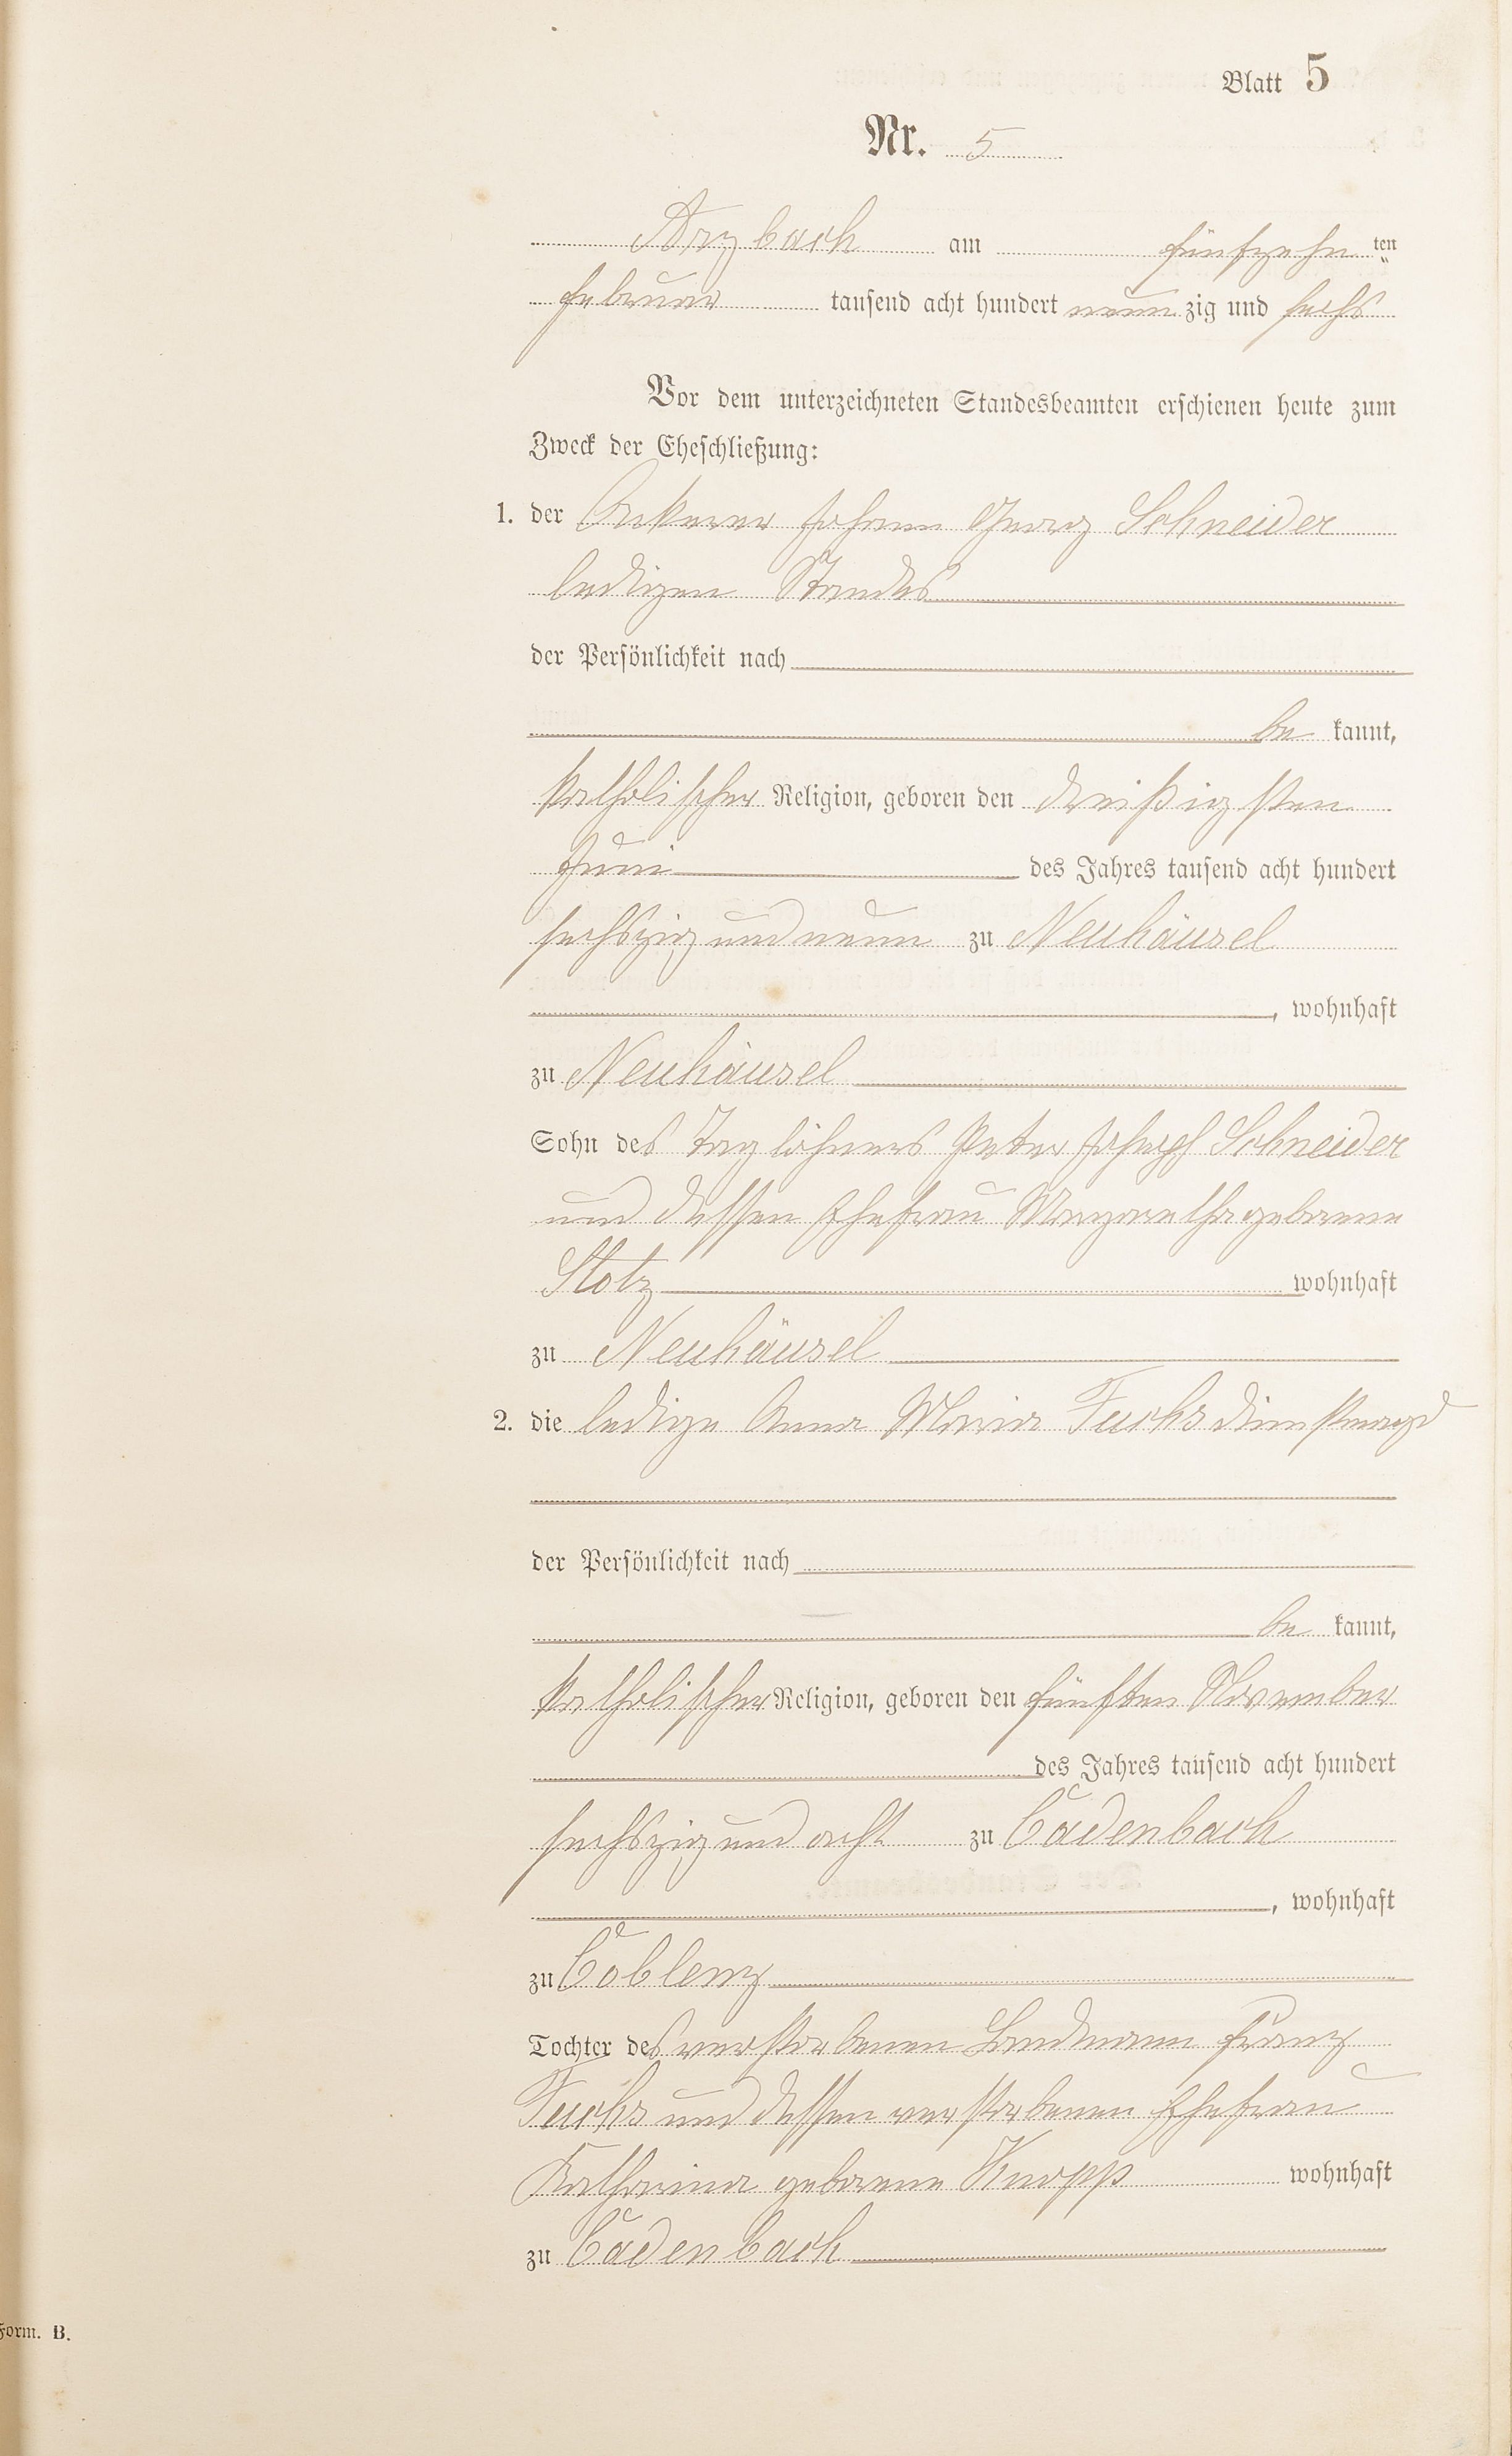 Blatt 5
Nr. 5
Arzbach am fünfzehn ten
Februar tausend acht hundert neun zig und sechs
Vor dem unterzeichneten Standesbeamten erschienen heute zum
Zweck der Eheschließung:
1. der Ackerer Johann Georg Schneider
ledigen Standes
der Persönlichkeit nach
be kannt,
katholischer Religion, geboren den dreißigsten
Juni des Jahres tausend acht hundert
sechszig und neun zu Neuhäusel
, wohnhaft
zu Neuhäusel
Sohn des Taglöhners Peter Joseph Schneider
und dessen Ehefrau Margaretha geborene
Stotz wohnhaft
zu Neuhäusel
2. die ledige Anna Maria Fuchs Dienstmagd
der Persönlichkeit nach
be kannt,
katholischer Religion, geboren den fünften November
des Jahres tausend acht hundert
sechszig und acht zu Cadenbach
, wohnhaft
zu Coblenz
Tochter des verstorbenen Landmann Franz
Fuchs und dessen verstorbenen Ehefrau
Katharina geborene Knopp wohnhaft
zu Cadenbach
Form. B.